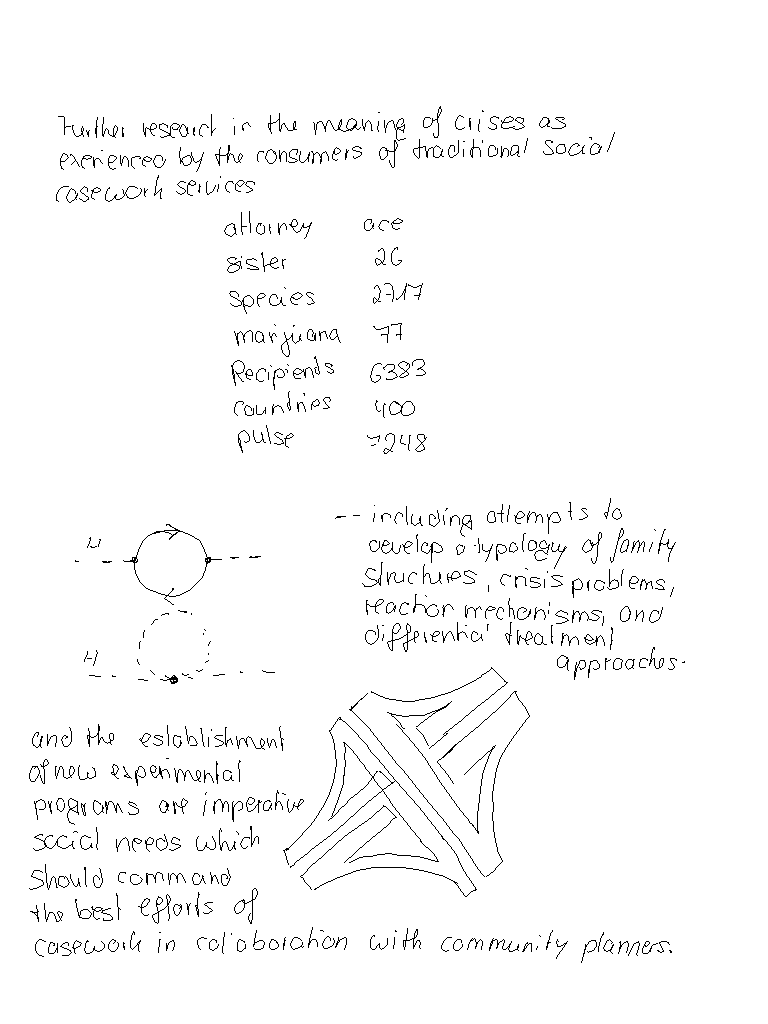 Further research in the meaning of crises as
exerienced by the consumers of traditional social
casework services
attorney ace
sister 26
species 2717
marijuana 77
Recipients 6383
countries 400
pulse 7248
H
-- including attempts to
develop a typology of family
structures, crisis problems,
reaction mechanisms, and
differential treatment
approaches.
H
and the establishment
of new experimental
programs are imperative
social needs which
should command
the best efforts of
casework in collaboration with community planners.